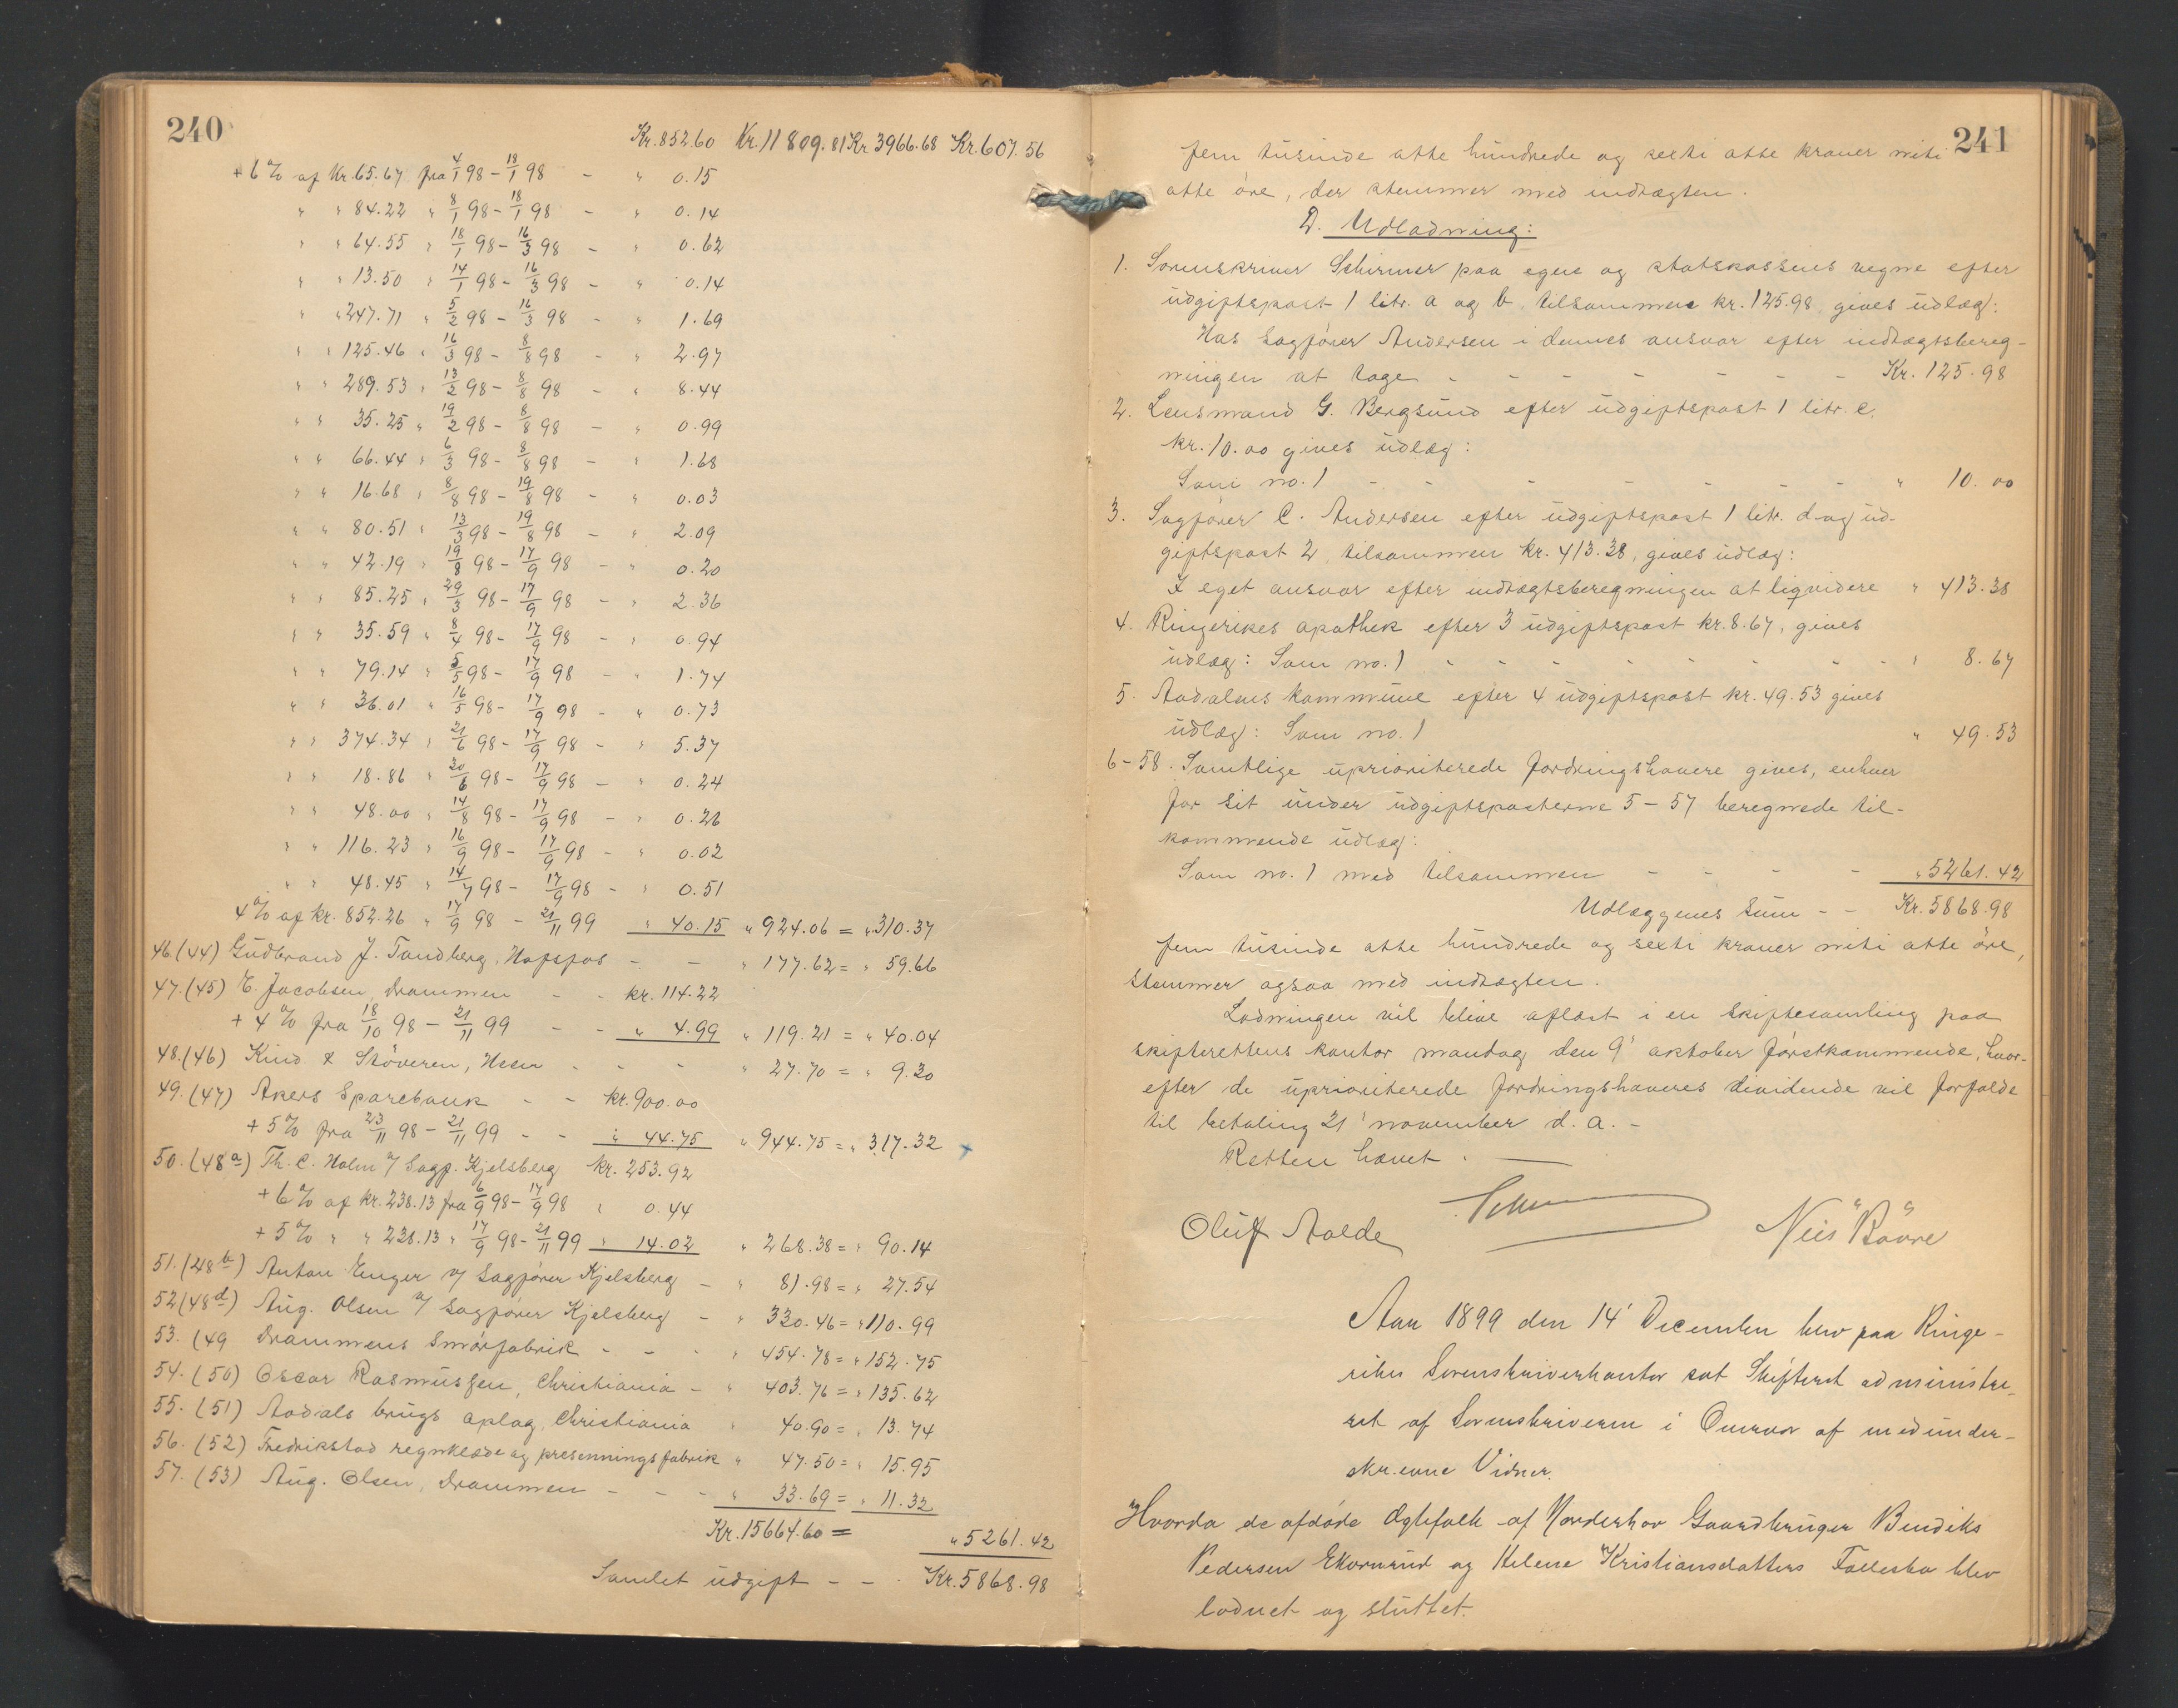 240
Kr. 852.60 Kr. 11 809.81 Kr 3966.68 Kr. 607.56
+ 6 % af Kr. 65.67 fra 4/1 98 - 18/1 98 - " 0.15
" " 84.22 " 8/1 98 - 18/1 98 - " 0.14
" " 64.55 " 18/1 98 - 16/3 98 - " 0.62
" " 13.50 " 14/1 98 - 16/3 98 - " 0.14
" " 247.71 " 5/2 98 - 16/3 98 - " 1.69
" " 125.46 " 16/3 98 - 8/8 98 - " 2.97
" " 289.53 " 13/2 98 - 8/8 98 - " 8.44
" " 35.25 " 19/2 98 - 8/8 98 - " 0.99
" " 66.44 " 6/3 98 - 8/8 98 - " 1.68
" " 16.68 " 8/8 98 - 19/8 98 - " 0.03
" " 80.51 " 13/3 98 - 19/8 98 - " 2.09
" " 42.19 " 19/8 98 - 17/9 98 - " 0.20
" " 85.25 " 29/3 98 - 17/9 98 - " 2.36
" " 35.59 " 8/4 98 - 17/9 98 - " 0.94
" " 79.14 " 5/5 98 - 17/9 98 - " 1.74
" " 36.01 " 16/5 98 - 17/9 98 - " 0.73
" " 374.34 " 21/6 98 - 17/9 98 - " 5.37
" " 18.86 " 30/6 98 - 17/9 98 - " 0.24
" " 48.00 " 14/8 98 - 17/9 98 - " 0.26
" " 116.23 " 16/9 98 - 17/9 98 - " 0.02
" " 48.45 " 14/7 98 - 17/9 98 - " 0.51
4 % af kr. 852.26 " 17/9 98 - 21/11 99 " 40.15 " 924.06 = " 310.37
46. (44) Gudbrand J. Tandberg, Hofsfos - - " 177.62 = " 59.66
47. (45) E. Jacobsen, Drammen - - kr. 114.22
+ 4 % fra 18/10 98 - 21/11 99 - - " 4.99 " 119.21 = " 40.04
48. (46) Kind & Stöveren, Heen - - - " 27.70 = " 9.30
49. (47) Akers Sparebank - - kr. 900.00
+ 5 % fra 23/11 98 - 21/11 99 - - " 44.75 " 944.75 = " 317.32 +
50. (48 a) Th. C. Holm v/ Sagf. Kjelsberg kr. 253.92
+ 6 % af kr. 238.13 fra 6/9 98 - 17/9 98 " 0.44
+ 5 % " " 238.13 " 17/9 98 - 21/11 99 " 14.02 " 268.38 = " 90.14
51. (48 b) Anton Enger v/ Sagfører Kjelsberg - " 81.98 = " 27.54
52 (48 d) Aug. Olsen v/ Sagfører Kjelsberg - " 330.46 = " 110.99
53. (49 Drammens Smørfabrik - - - " 454.78 = " 152.75
54. (50) Oscar Rasmussen, Christiania - " 403.76 = " 135.62
55. (51) Aadals brugs oplag, Christiania " 40.90 = " 13.74
56. (52) Fredrikstad regnklæde og presenningsfabrik " 47.50 = " 15.95
57. (53) Aug. Olsen, Drammen - - - " 33.69 = " 11.32
Kr. 15664.60 =
" 5261.42
Samlet udgift - - Kr. 5868.98
241
fem tusinde otte hundrede og sexti otte kroner niti
otte øre, der stemmer med indtægten.
D. Udlodning:
1. Sorenskriver Schirmer paa egne og statskassens vegne efter
udgiftspost 1 litr. a og b tilsammen kr. 125.98, gives udlæg:
Hos Sagfører Andersen i dennes ansvar efter indtægtsbereg-
ningen at tage - - - - - - - Kr. 125.98
2. Lensmand G. Bergsund efter udgiftspost 1 litr. c.
kr. 10.00 gives udlæg:
Som no. 1 - - - - - - - " 10.00
3. Sagfører C. Andersen efter udgiftspost 1 litr. d og ud-
giftspost 2, tilsammen kr. 413.38, gives udlæg:
I eget ansvar efter indtægtsberegningen at liqvidere " 413.38
4. Ringerikes apothek efter 3 udgiftspost kr. 8.67, gives
udlæg: Som no. 1 - - - - - - - " 8.67
5. Aadalens kommune efter 4 udgiftspost kr. 49.53 gives
udlæg: Som no. 1 " 49.53
6-58. Samtlige uprioriterede fordringshavere gives, enhver
for sit under udgiftsposterne 5-57 beregnede til-
kommende udlæg:
Som no. 1 med tilsammen - - - - " 5261.42
Udlæggenes Sum - - Kr. 5868.98
fem tusinde otte hundrede og sexti kroner niti otte øre,
stemmer ogsaa med indtægten.
Lodningen vil blive oplæst i en skiftesamling paa
skifterettens kontor mandag den 9' oktober førstkommende, hvor-
efter de uprioriterede fordringshaveres dividende vil forfalde
til betaling 21' november d. a. -
Retten hævet. —
Oluf Aolde Nils Bøvre
Aar 1899 den 14' December blev paa Ringe-
rikes Sorenskriverkontor sat Skifteret administre-
ret af Sorenskriveren i Overvær af medunder-
skrevne Vidner.
Hvorda de afdøde Ægtefolk af Norderhov Gaardbruger Bendiks
Pedersen Ekornrud og Helene Kristiansdatters Fællesbo blev
lodnet og sluttet.